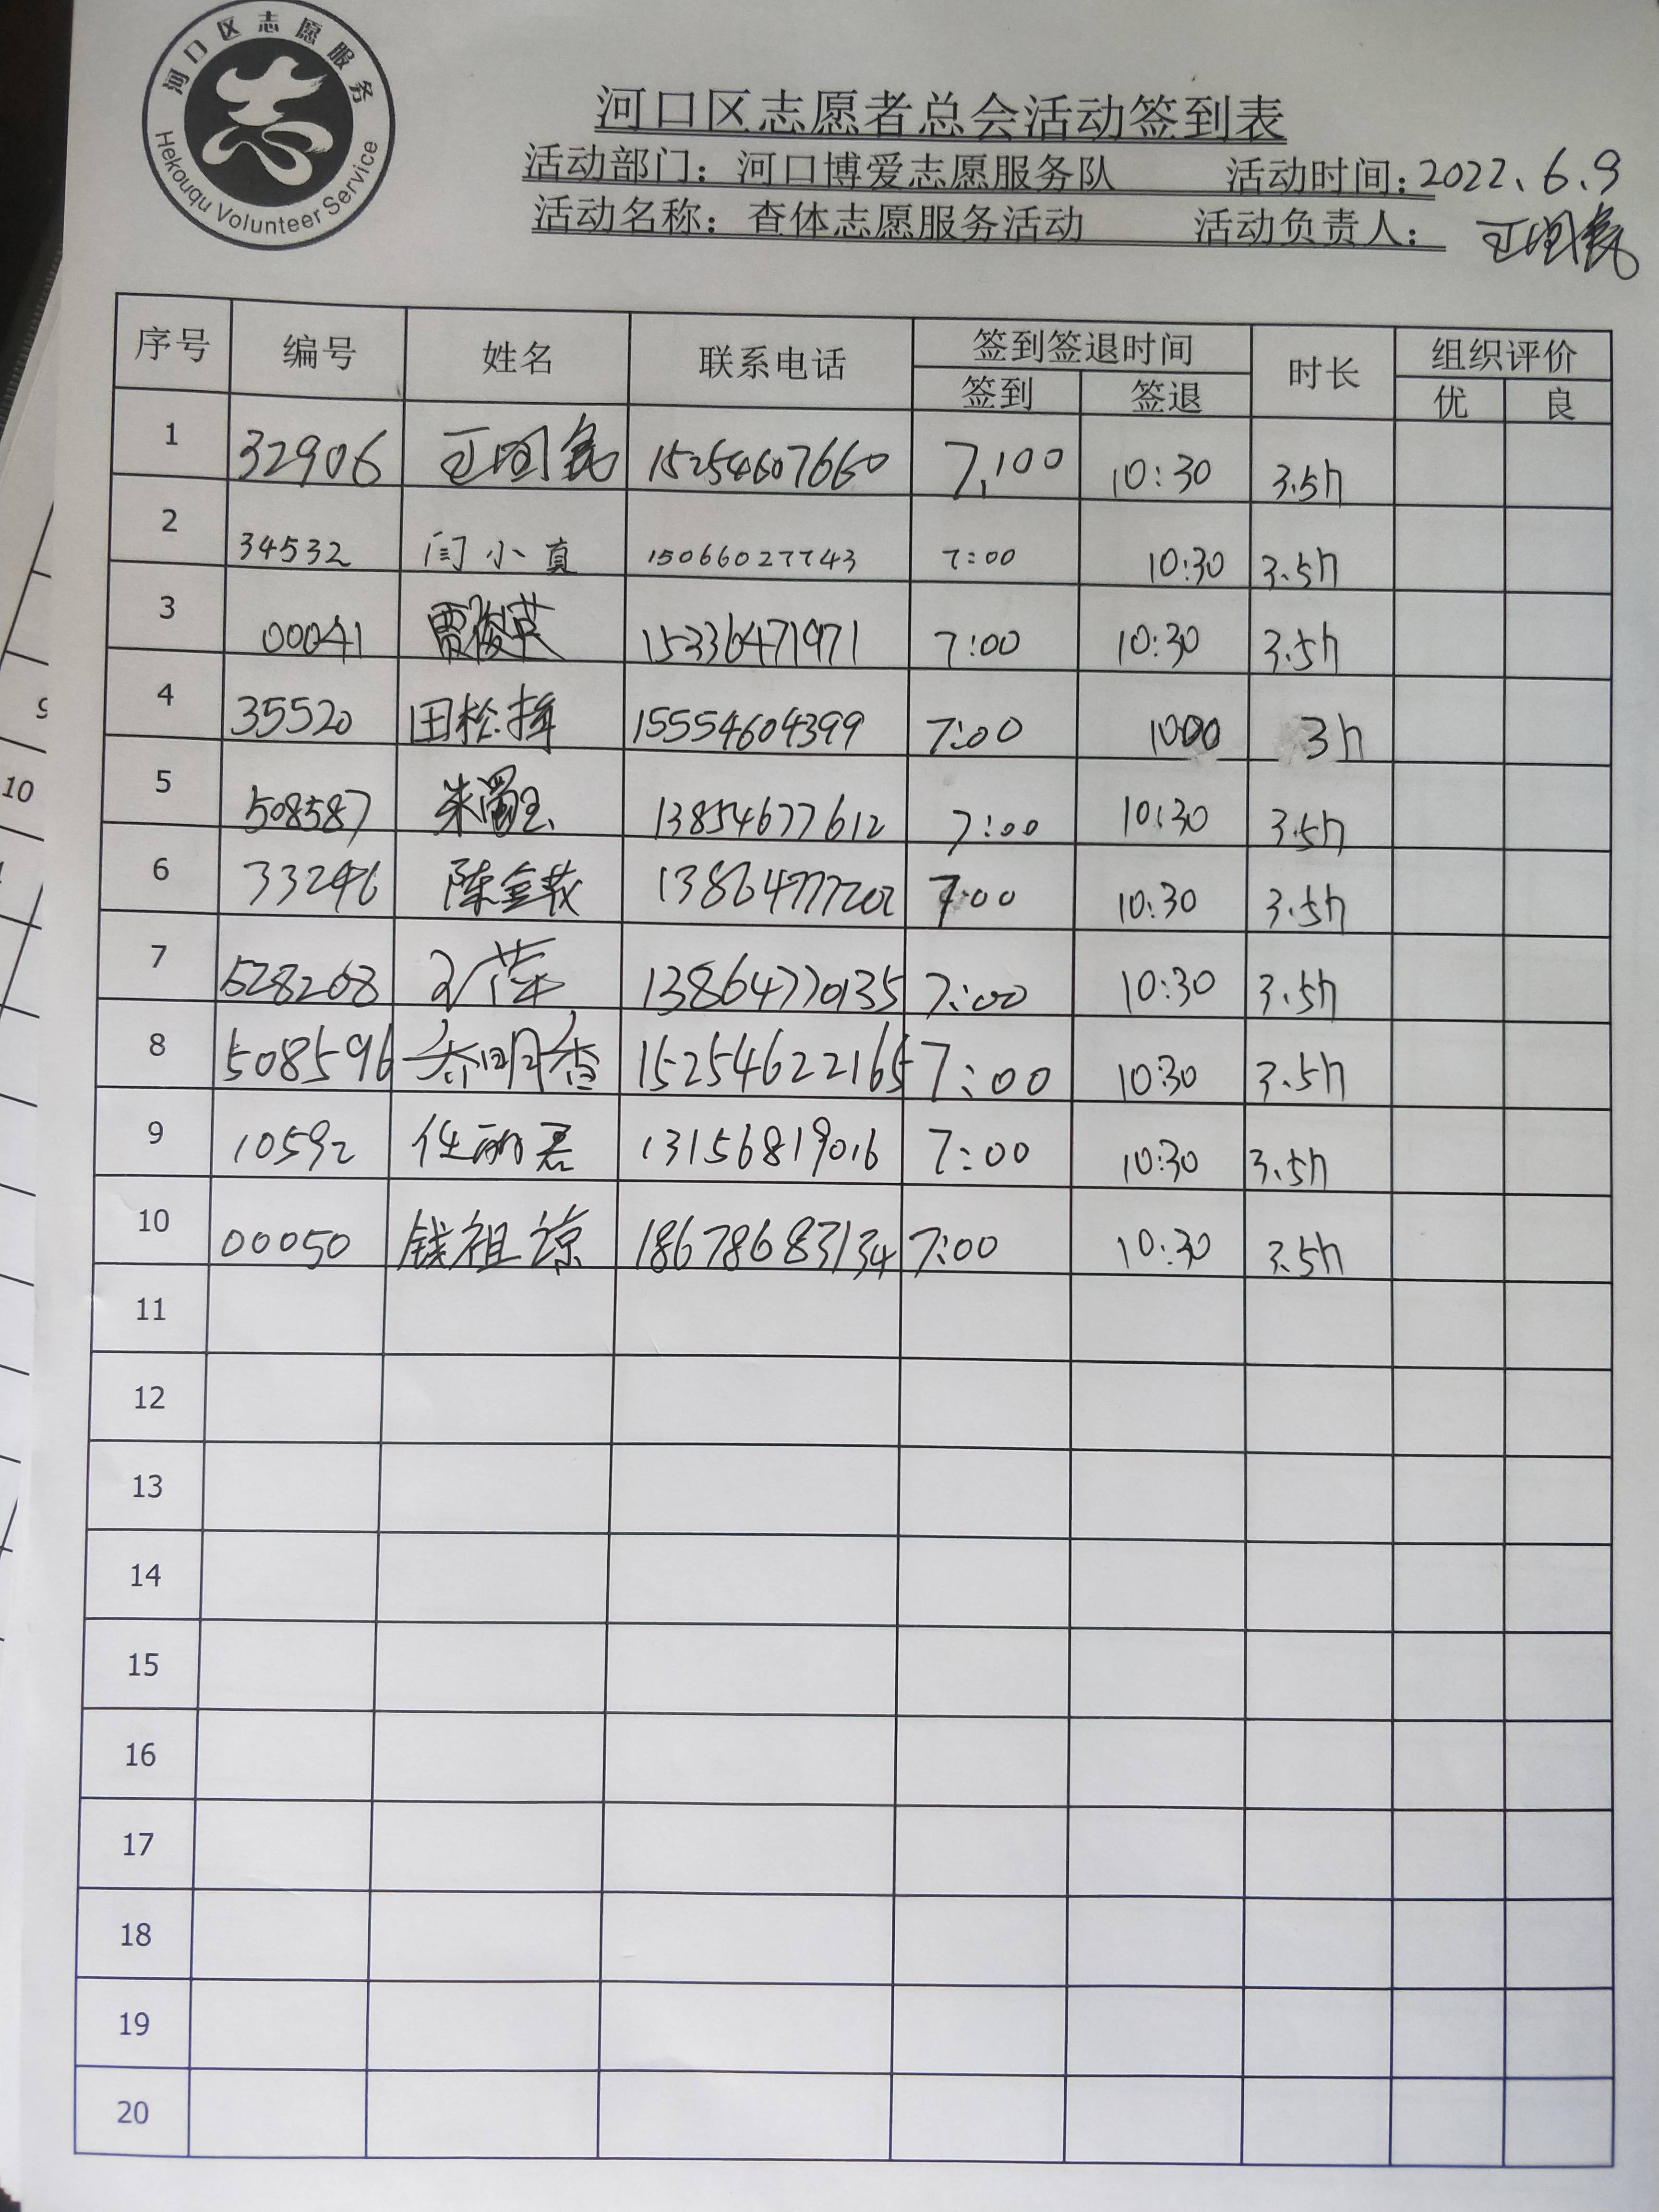 河口区志愿服务
Hekouqu Volunteer Service
河口区志愿者总会活动签到表
活动部门：河口博爱志愿服务队 活动时间：2022、6、9
活动名称：查体志愿服务活动 活动负责人：
序号 编号 姓名 联系电话 签到签退时间 时长 组织评价
签到 签退 优 良
1 32906 15254607660 7:00 10:30 3.5h
2 34532 闫小真 15066027743 7:00 10:30 3.5h
3 00041 贾俊英 15336471971 7:00 10:30 3.5h
4 35520 田松 15554604399 7:00 1000 3h
5 508587 朱 13854677612 7:00 10:30 3.5h
6 33246 陈金 13864777202 7:00 10:30 3.5h
7 528268 萍 13864770135 7:00 10:30 3.5h
8 508596 乔明香 15254622165 7:00 10:30 3.5h
9 10592 任丽君 13156819016 7:00 10:30 3.5h
10 00050 钱祖谅 18678683134 7:00 10:30 3.5h
11
12
13
14
15
16
17
18
19
20
9
10